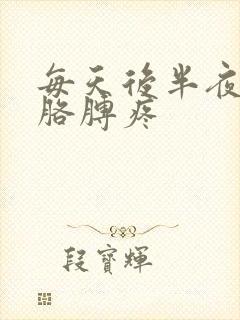 每天後半夜
胳膊疼
段寶輝